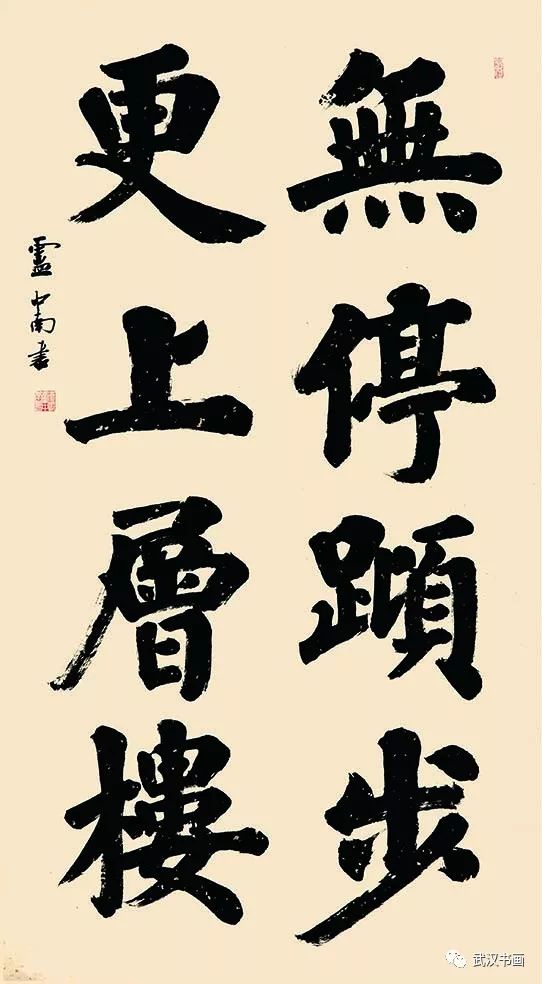 無停蹞步
更上層樓
盧中南書
武汉书画